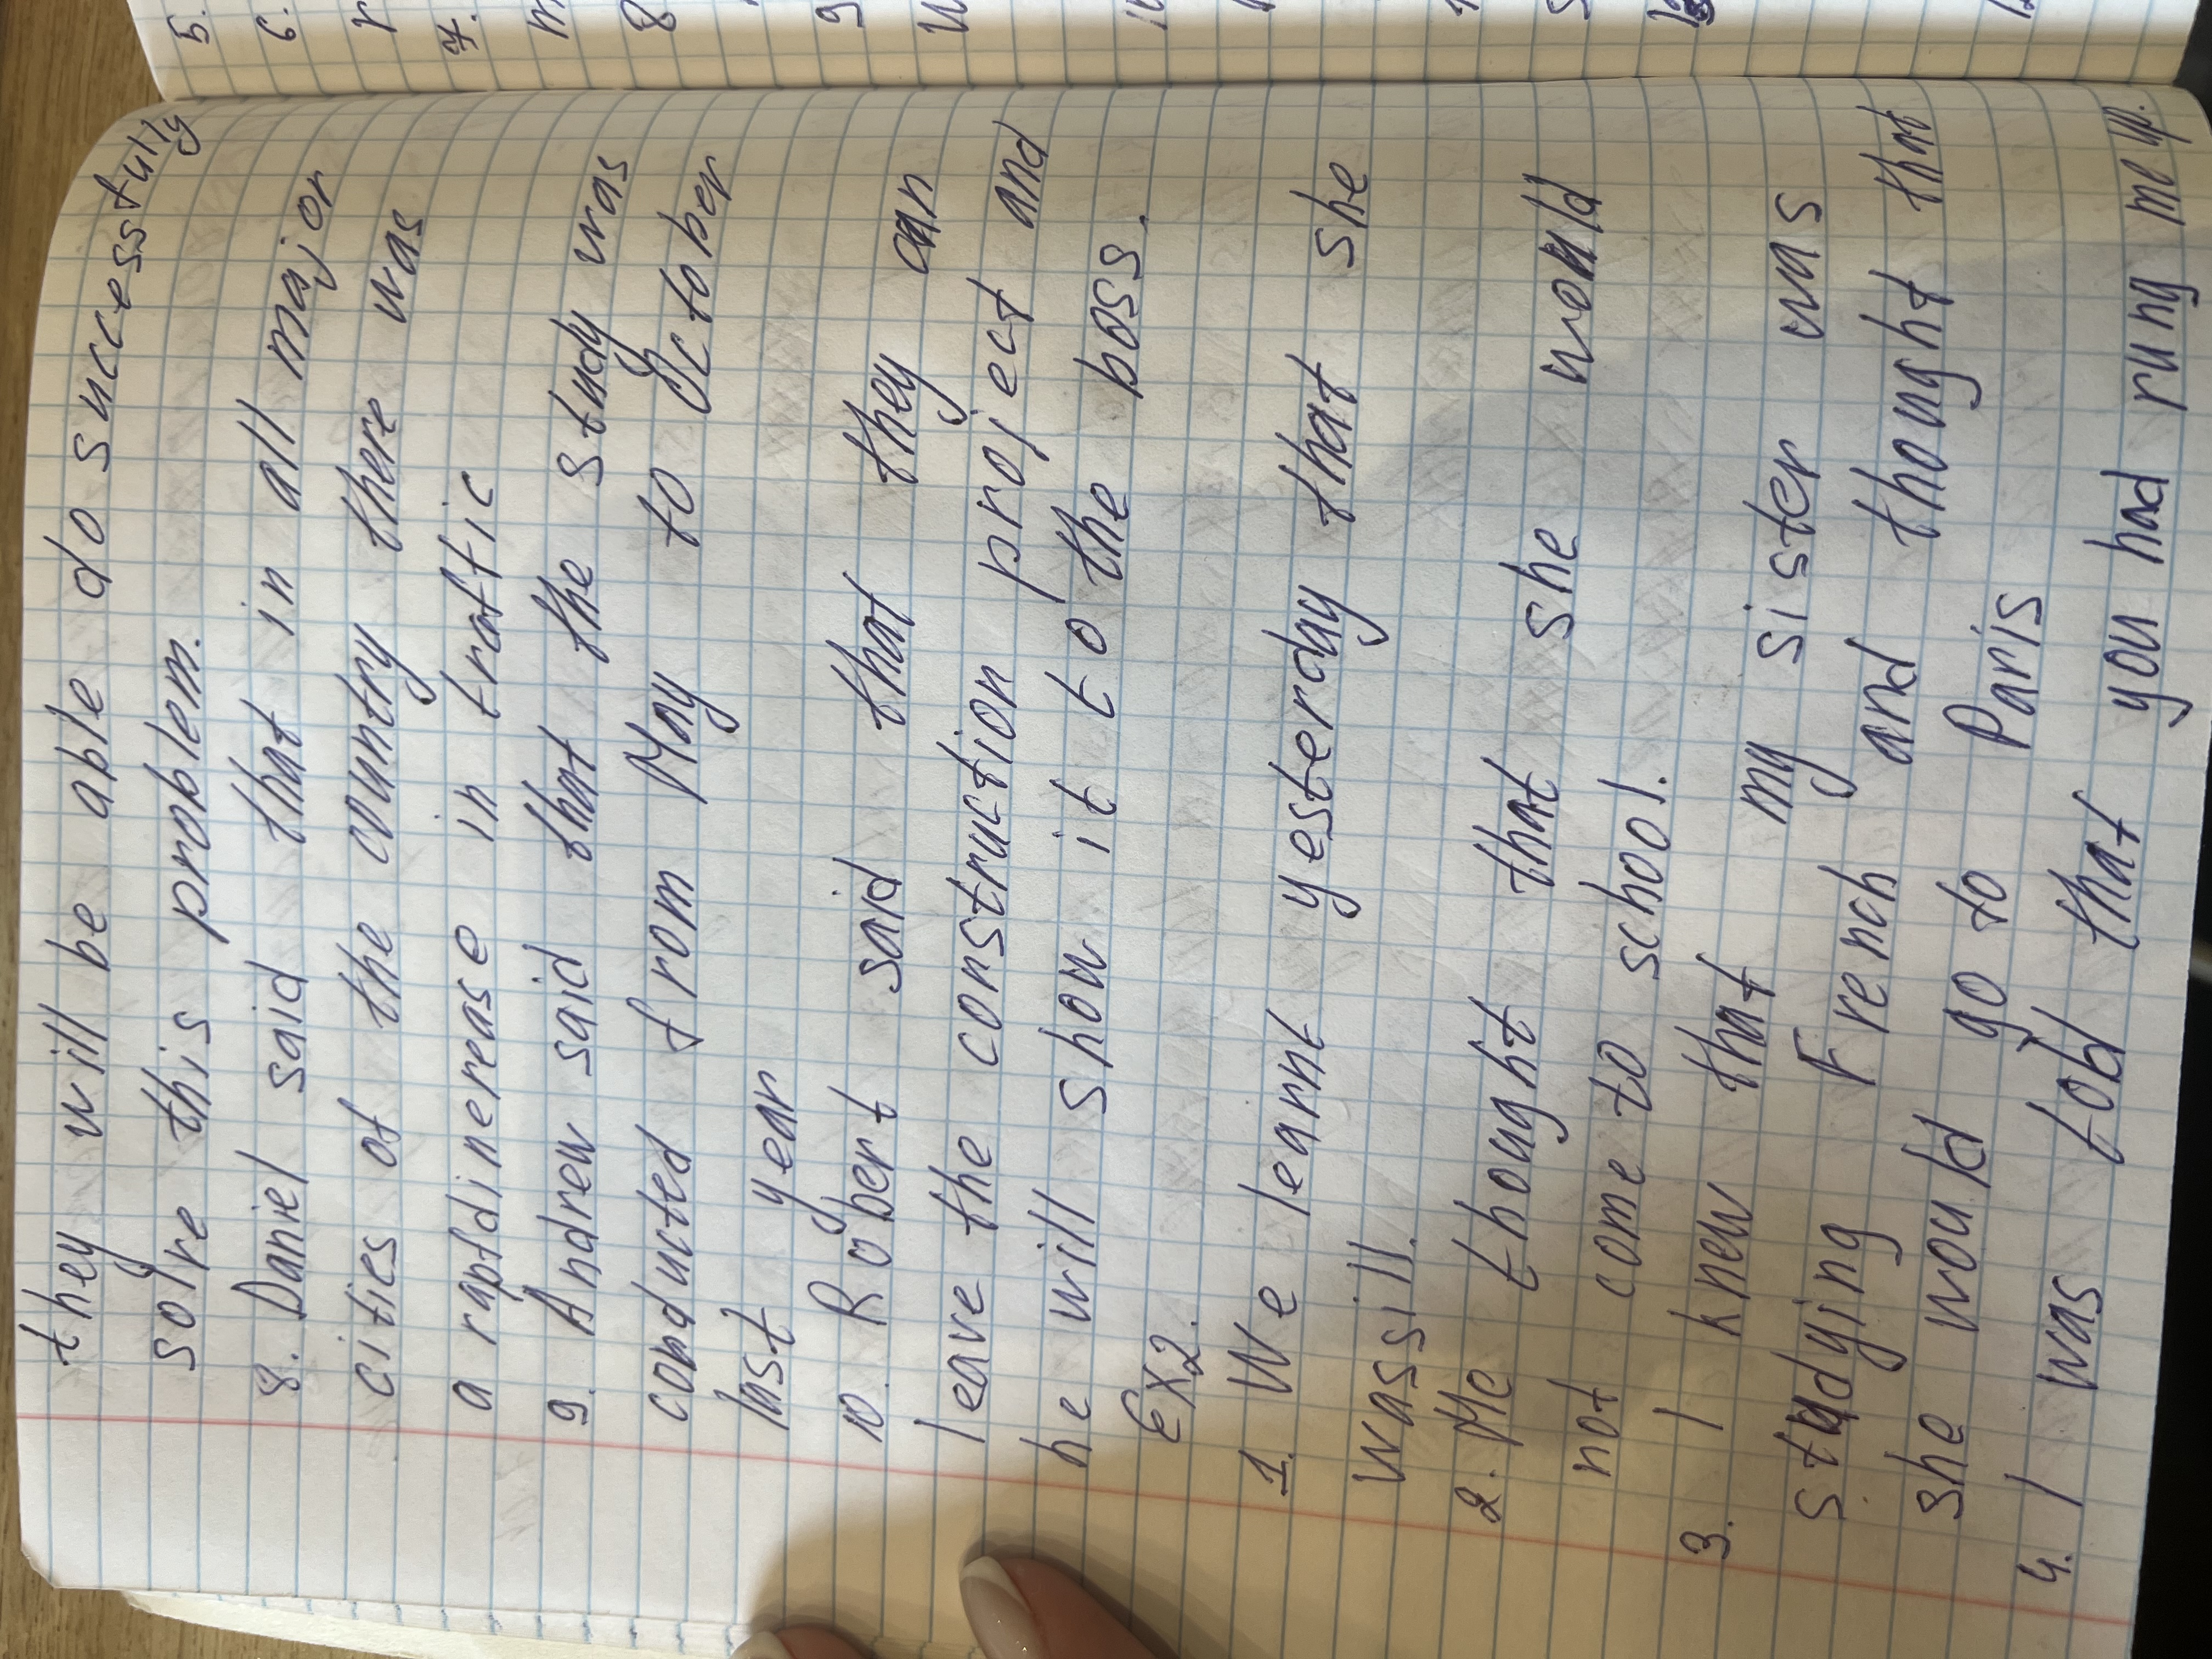 they will be able do successfully
solve this problem.
8. Daniel said that in all major
cities of the country there was
a rapid inerease in traffic
9. Andrew said that the study was
conducted from May to October
last year
10. Robert said that they can
leave the construction project and
he will show it to the boss.
Ex2.
1. We learnt yesterday that she
wassill.
2. Me thought that she would
not come to school.
3. I knew that my sister was
studying French and thought that
she would go to Paris
4. I was told that you had rung me up.
5.
6.
7.
8
9